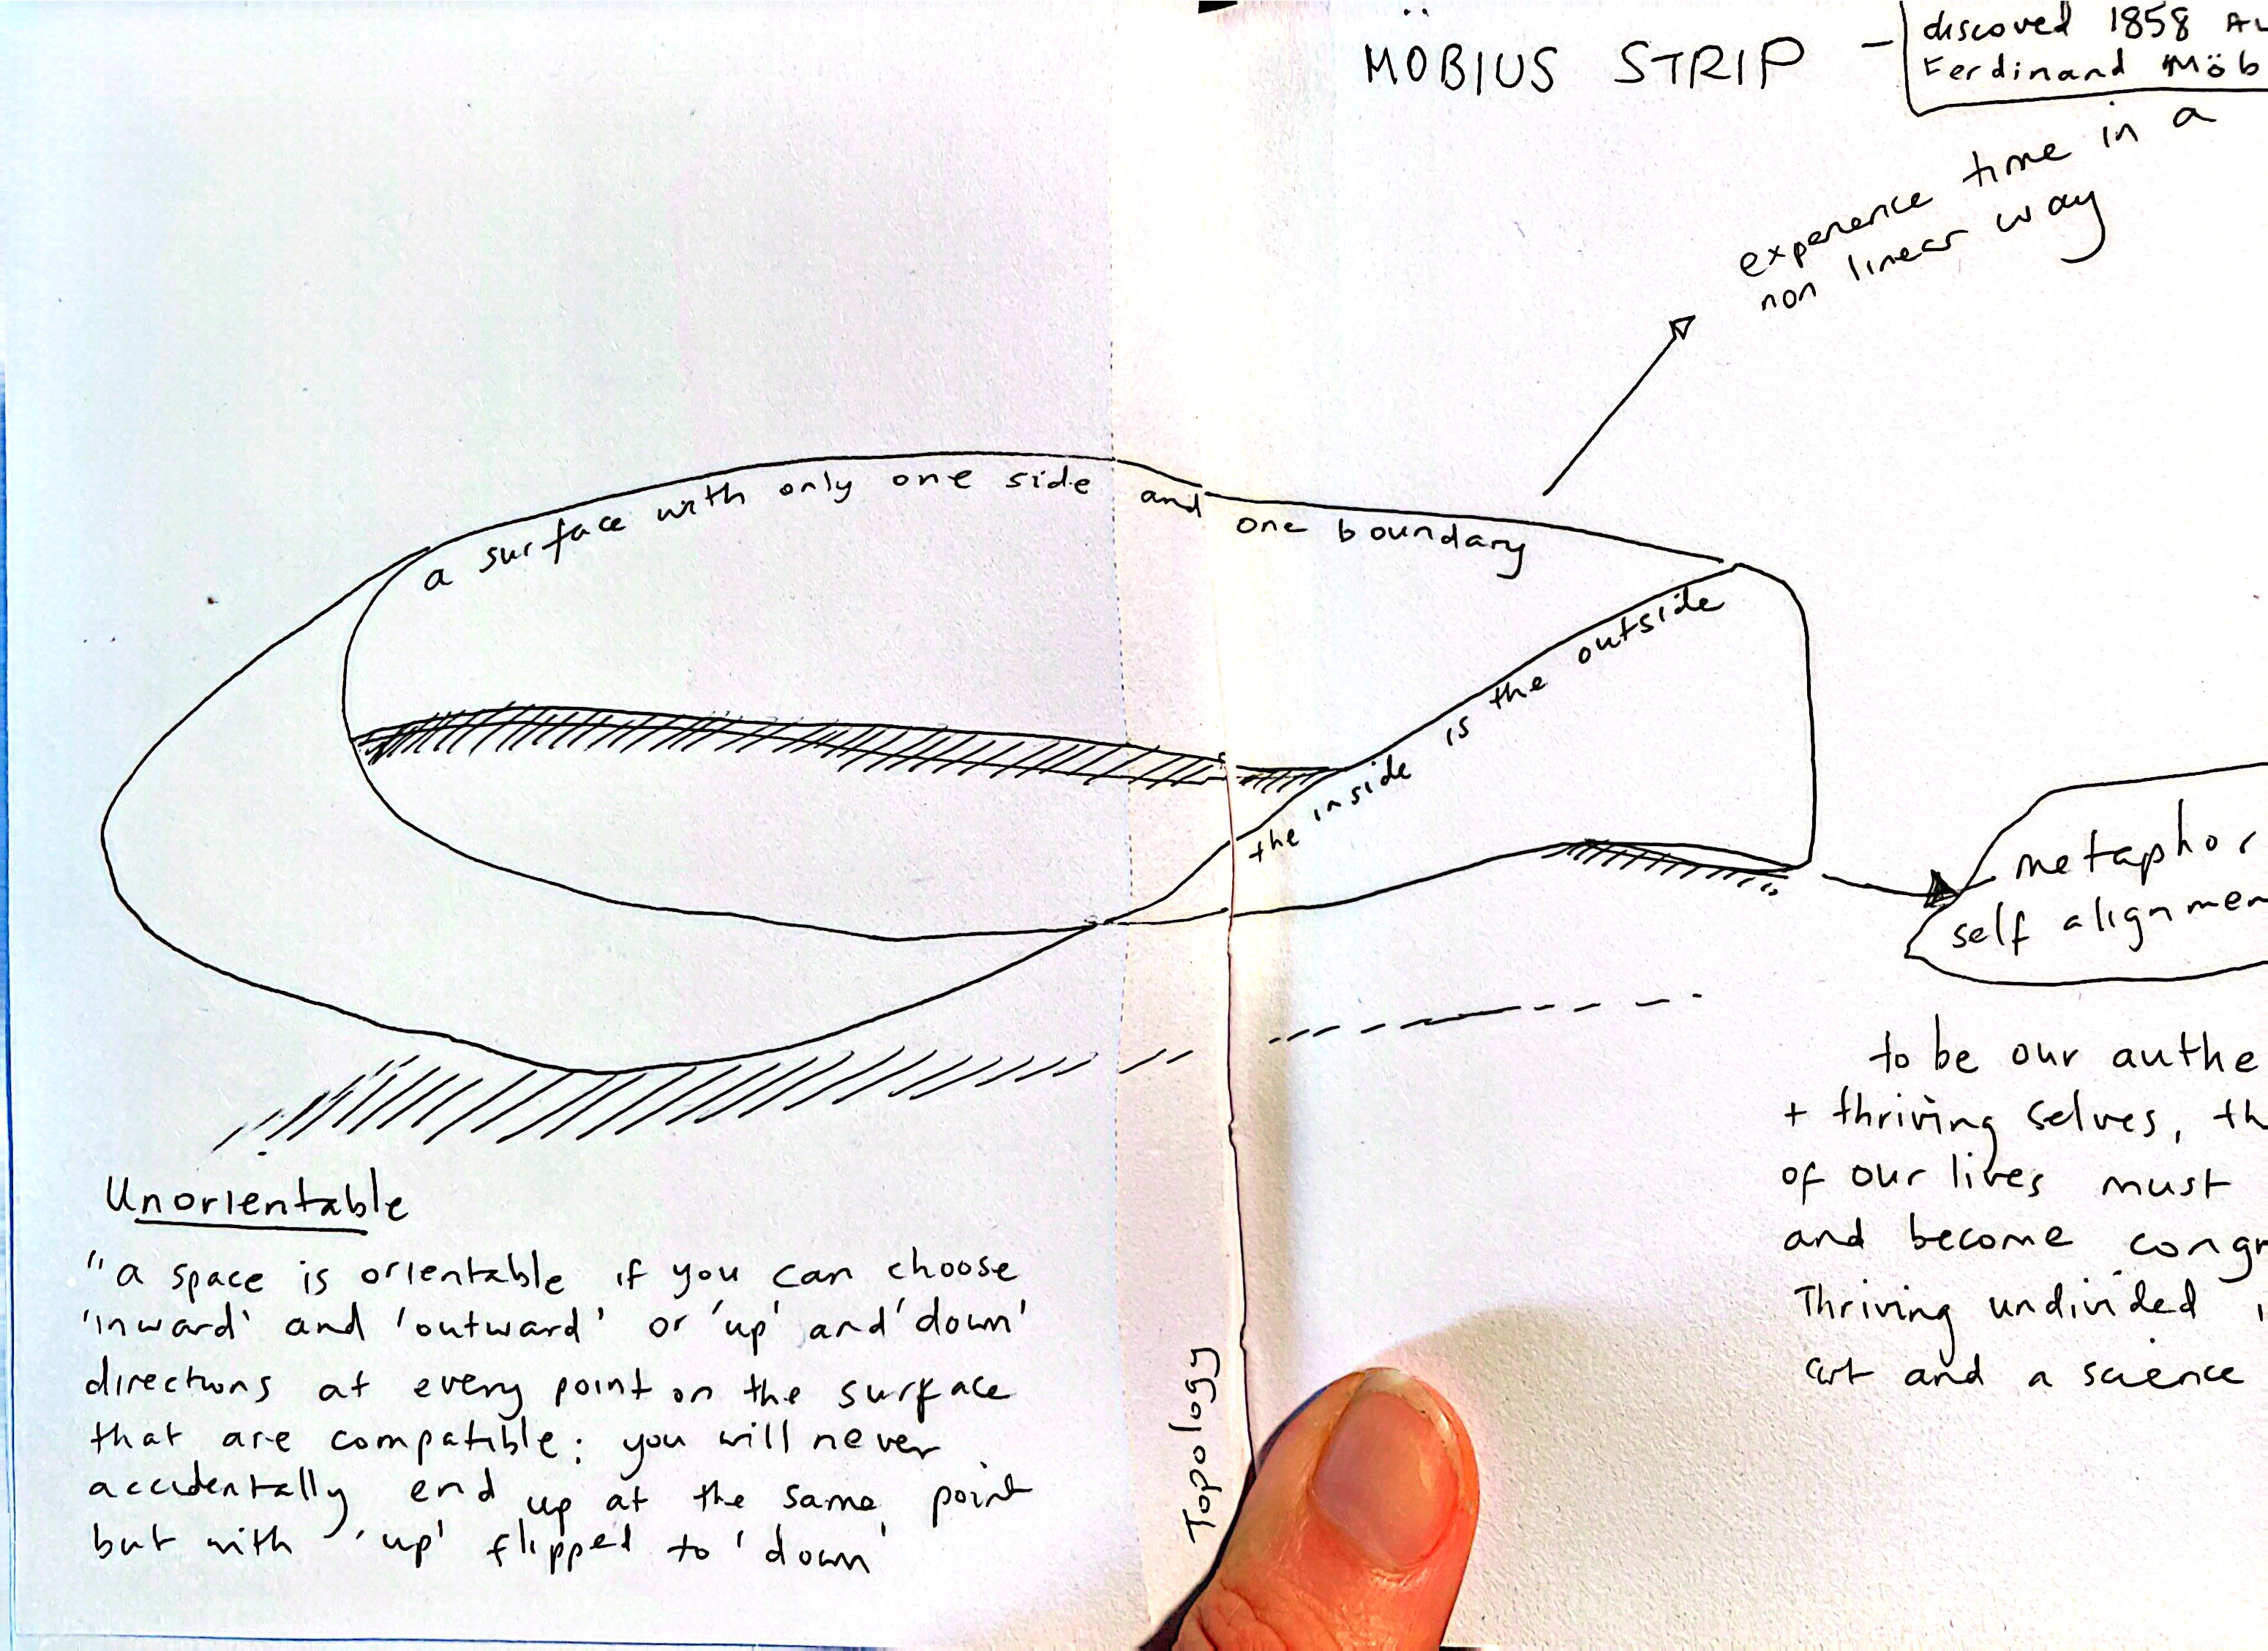 MÖBIUS STRIP –
discoved 1858
Ferdinand Möb
experience time in a
non linear way
a surface with only one side and one boundary
the inside is the outside
metaphor
self alignmen
to be our authe
+ thriving selves, th
of our lives must
and become congr
Thriving undivided
art and a science
Unorientable
"a space is orientable if you can choose
'inward' and 'outward' or 'up' and 'down'
directions at every point on the surface
that are compatible: you will never
accidentally end up at the same point
but with 'up' flipped to 'down'
Topology